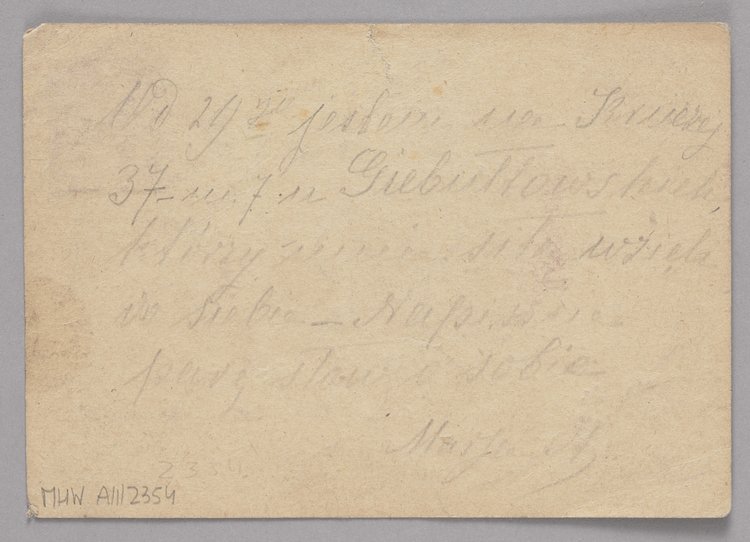 Od 29go jestem na Kruczy
37 m. 7 u Giebułtowskich,
którzy mnie wzięli
do siebie – Napiszcie
parę słów o sobie
Marja
2354.
MHW AIII/2354